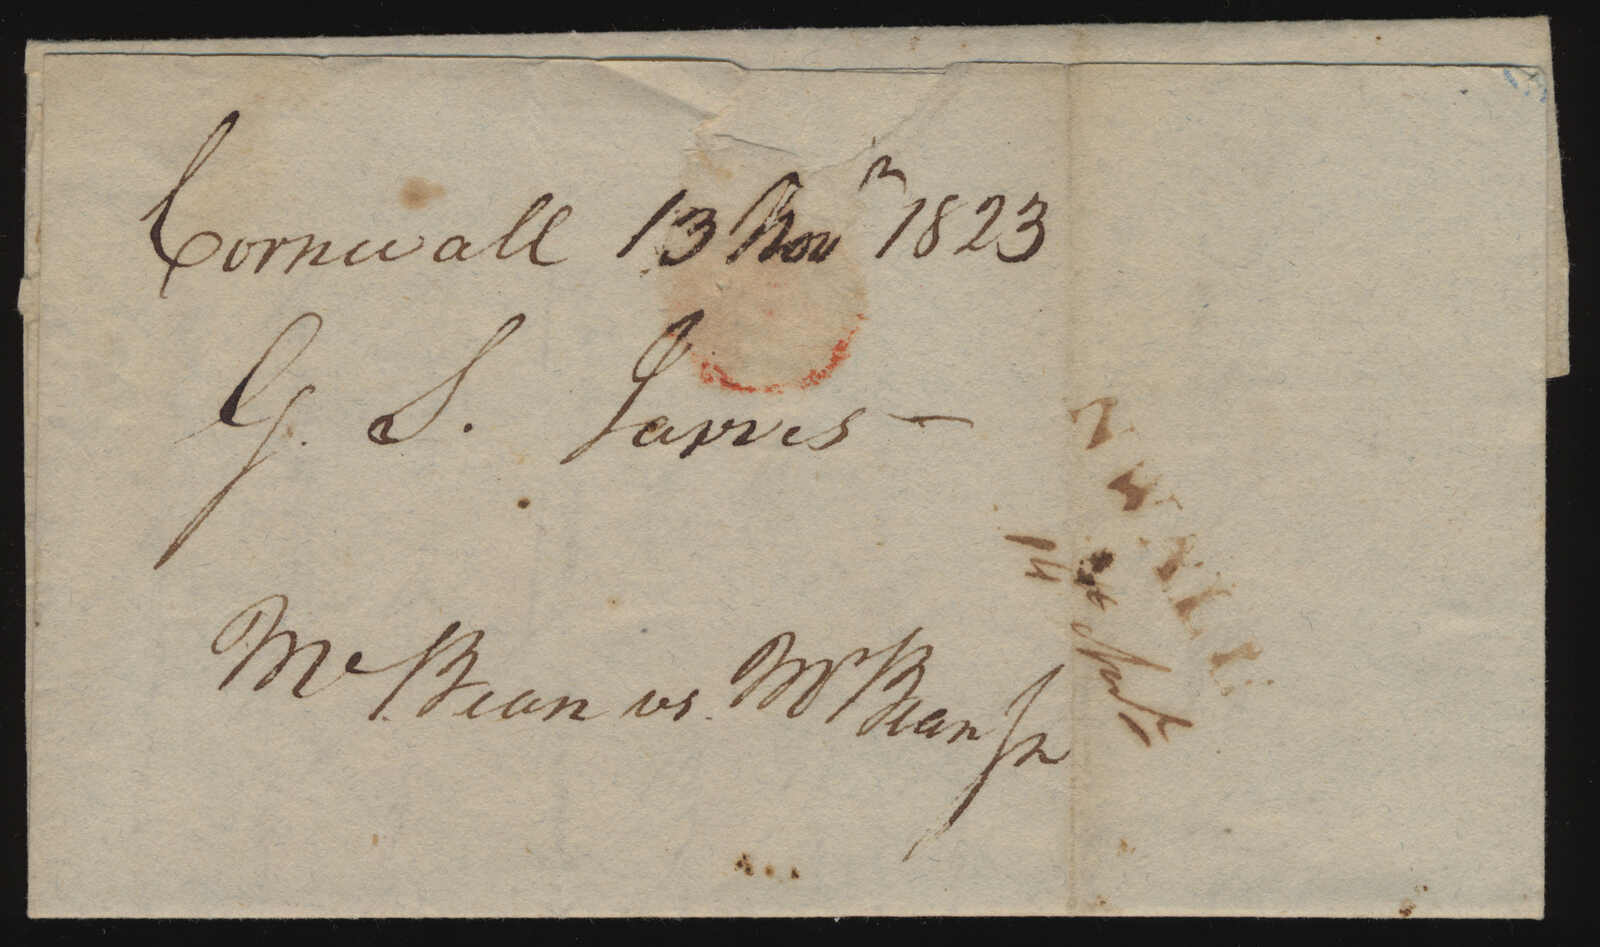 Cornwall 13 Novr 1823
G. S. Jarvis –
McBean vs. McBean Jr
14